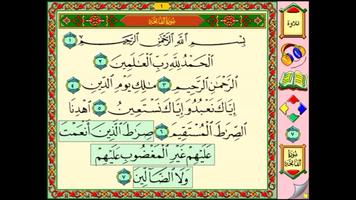 ١
سُورَةُ الْفَاتِحَةِ
بِسْمِ اللَّهِ الرَّحْمَٰنِ الرَّحِيمِ ١
الْحَمْدُ لِلَّهِ رَبِّ الْعَالَمِينَ ٢
الرَّحْمَٰنِ الرَّحِيمِ ٣ مَالِكِ يَوْمِ الدِّينِ ٤
إِيَّاكَ نَعْبُدُ وَإِيَّاكَ نَسْتَعِينُ ٥ اهْدِنَا
الصِّرَاطَ الْمُسْتَقِيمَ ٦ صِرَاطَ الَّذِينَ أَنْعَمْتَ
عَلَيْهِمْ غَيْرِ الْمَغْضُوبِ عَلَيْهِمْ
وَلَا الضَّالِّينَ ٧
تلاوة
٧
سُورَةُ الْفَاتِحَةِ